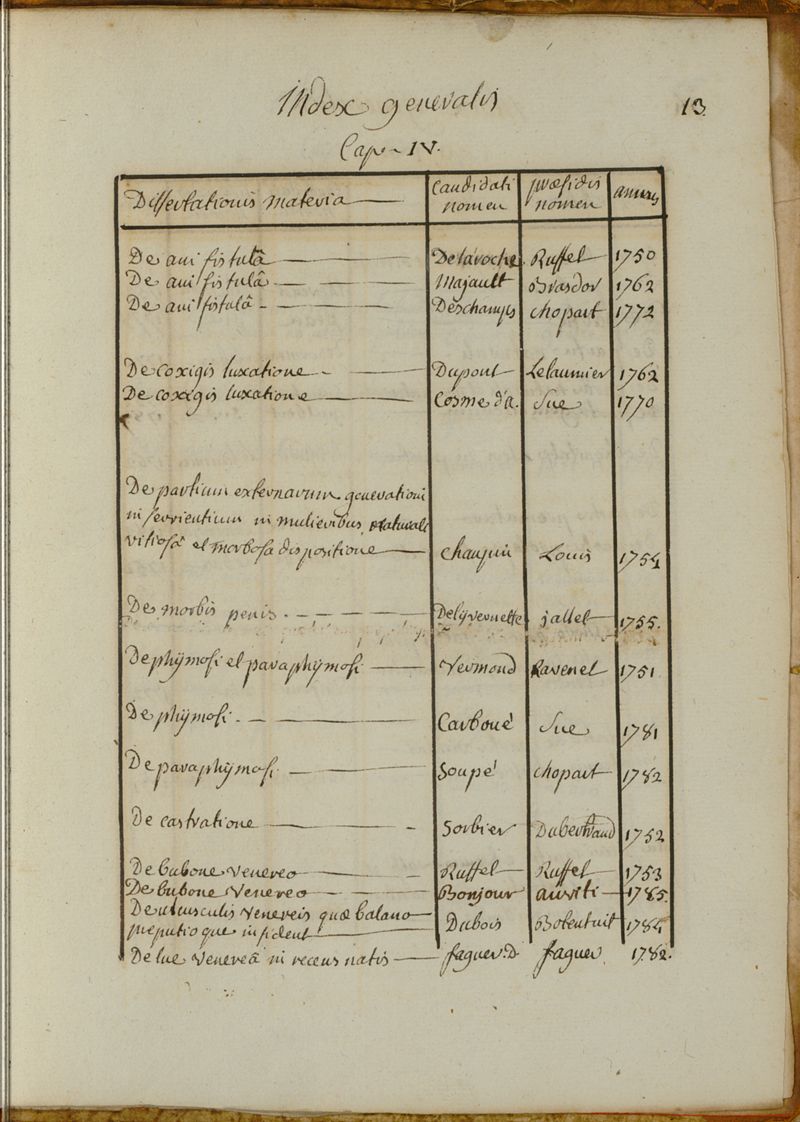 Index generalis 13
Cap. IV.
Dissertationis materia candidati nomen præsidis nomen annus
De ani fistulâ Delaroche. Ruffel 1750
De ani fistulâ Majault Brasdor 1762
De ani fistulâ Deschamps chopart 1772
De coxigis luxatione Dupont Lelaumier 1762
De coxigis luxatione Cosme d'a. Sue 1770
De partium externarum generationi
inservientium in mulieribus naturali
vitiosâ et morbosa dispositione chaupin Louis 1754
De morbis penis Delÿvernette jallet 1755.
De phÿmosi et paraphÿmosi Vermond Ravenel 1751
De phÿmosi Carboué Sue 1781
De paraphÿmosi Soupé chopart 1782
De castratione Sorbier Dubertrand 1752
De bubone venereo Ruffel Ruffel 1753
De bubone venereo Bonjour auviti 1785.
De ulcusculis venereis quæ balano
preputioque insident Dubois Botentuit 1784
De lue venereâ in recens natis faguer. D faguer. 1782.